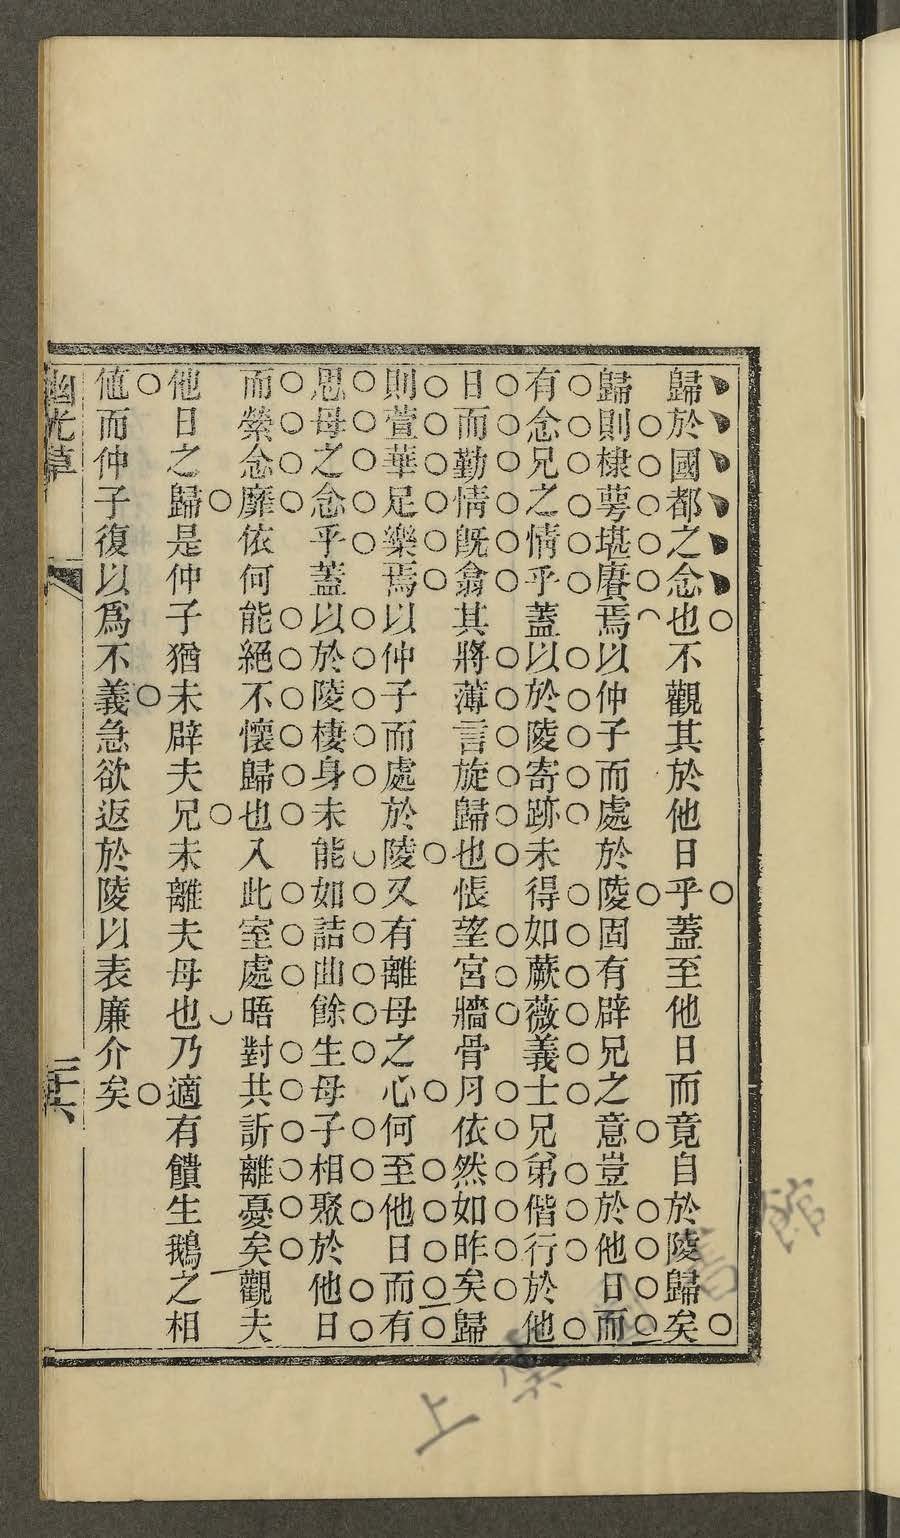 歸於國都之念也不觀其於他日乎蓋至他日而竟自於陵歸矣
歸則棣萼堪賡焉以仲子而處於陵固有辟兄之意豈於他日而
有念兄之情乎蓋以於陵寄跡未得如蕨薇義士兄弟偕行於他
日而勤情旣翕其將薄言旋歸也悵望宮牆骨月依然如昨矣歸
則萱華足樂焉以仲子而處於陵又有離母之心何至他日而有
思母之念乎蓋以於陵棲身未能如詰曲餘生母子相聚於他日
而縈念靡依何能絕不懷歸也入此室處晤對共訢離憂矣觀夫
他日之歸是仲子猶未辟夫兄未離夫母也乃適有饋生鵝之相
値而仲子復以爲不義急欲返於陵以表廉介矣
幽光草
二十六
上 圖書館